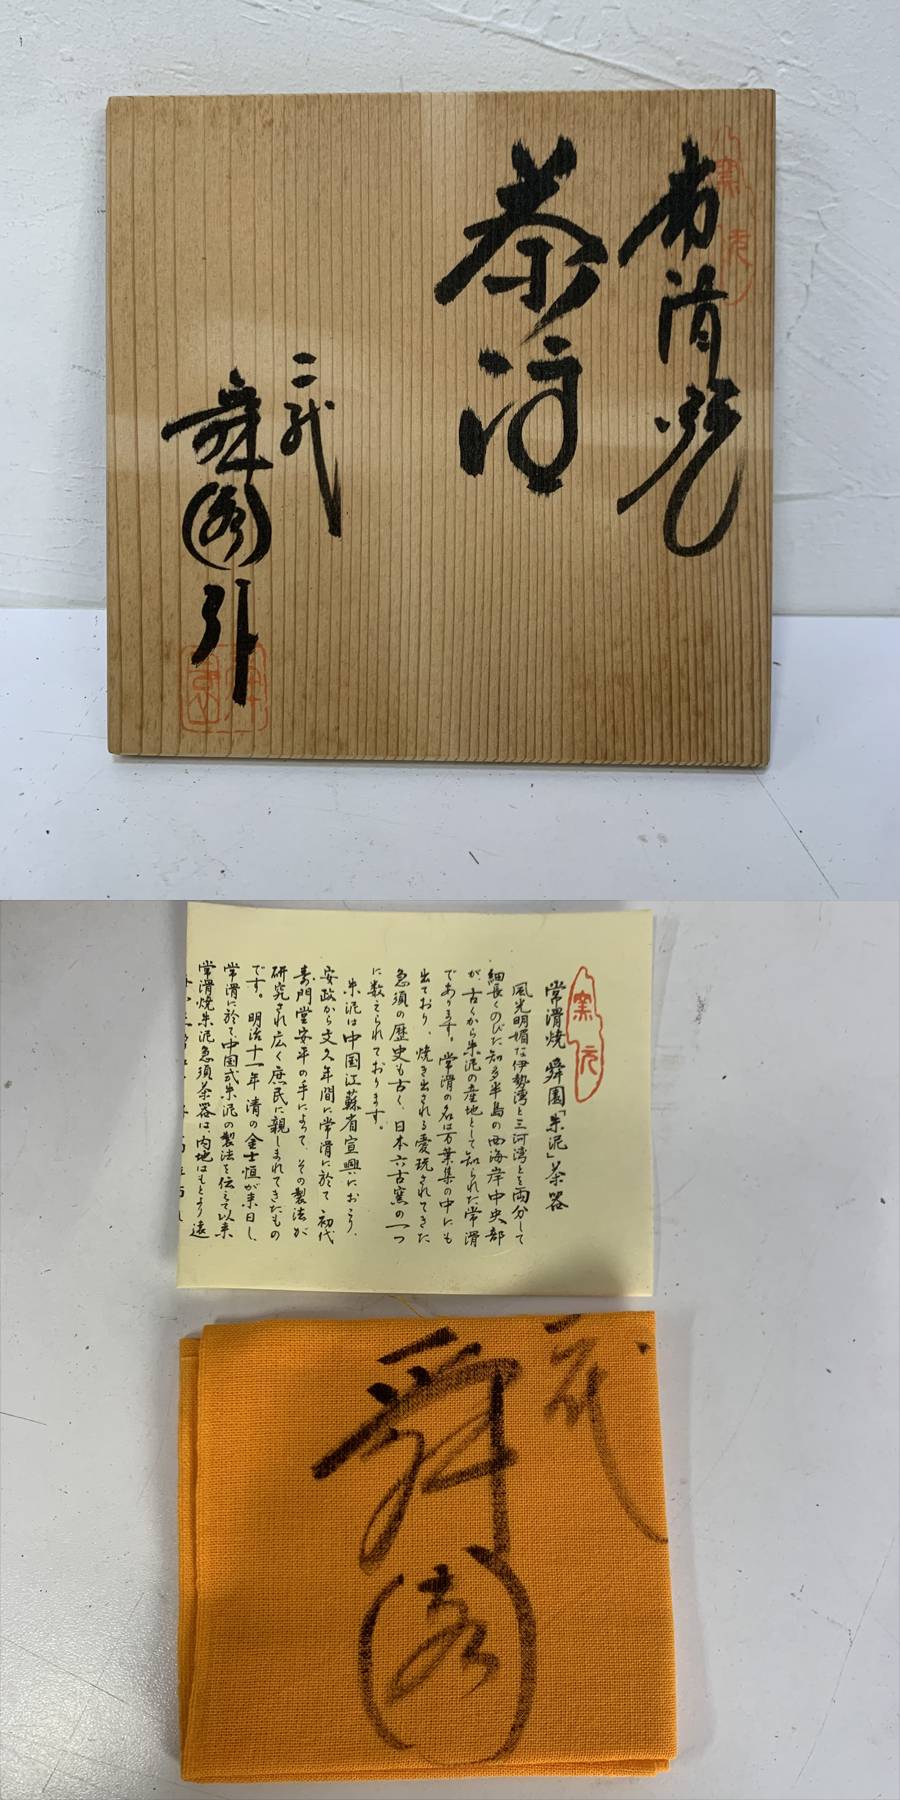 窯元
常滑焼
茶注
二代
舜園引
舜園
窯元
常滑焼 舜園「朱泥」茶器
風光明媚な伊勢湾と三河湾とを両分して
細長くのびた知多半島の西海岸中央部
が、古くから朱泥の産地として知られた常滑
であります。常滑の名は万葉集の中にも
出ており、焼き出される愛玩されてきた
急須の歴史も古く、日本六古窯の一つ
に数えられております。
朱泥は中国江蘇省宣興におこり、
安政から文久年間に常滑に於て 初代
寿門堂安平の手によって、その製法が
研究され広く庶民に親しまれてきたもの
です。明治十一年 清の金士恒が来日し、
常滑に於て中国式朱泥の製法を伝えて以来
常滑焼朱泥急須茶器は、内地はもとより遠
二代
舜園